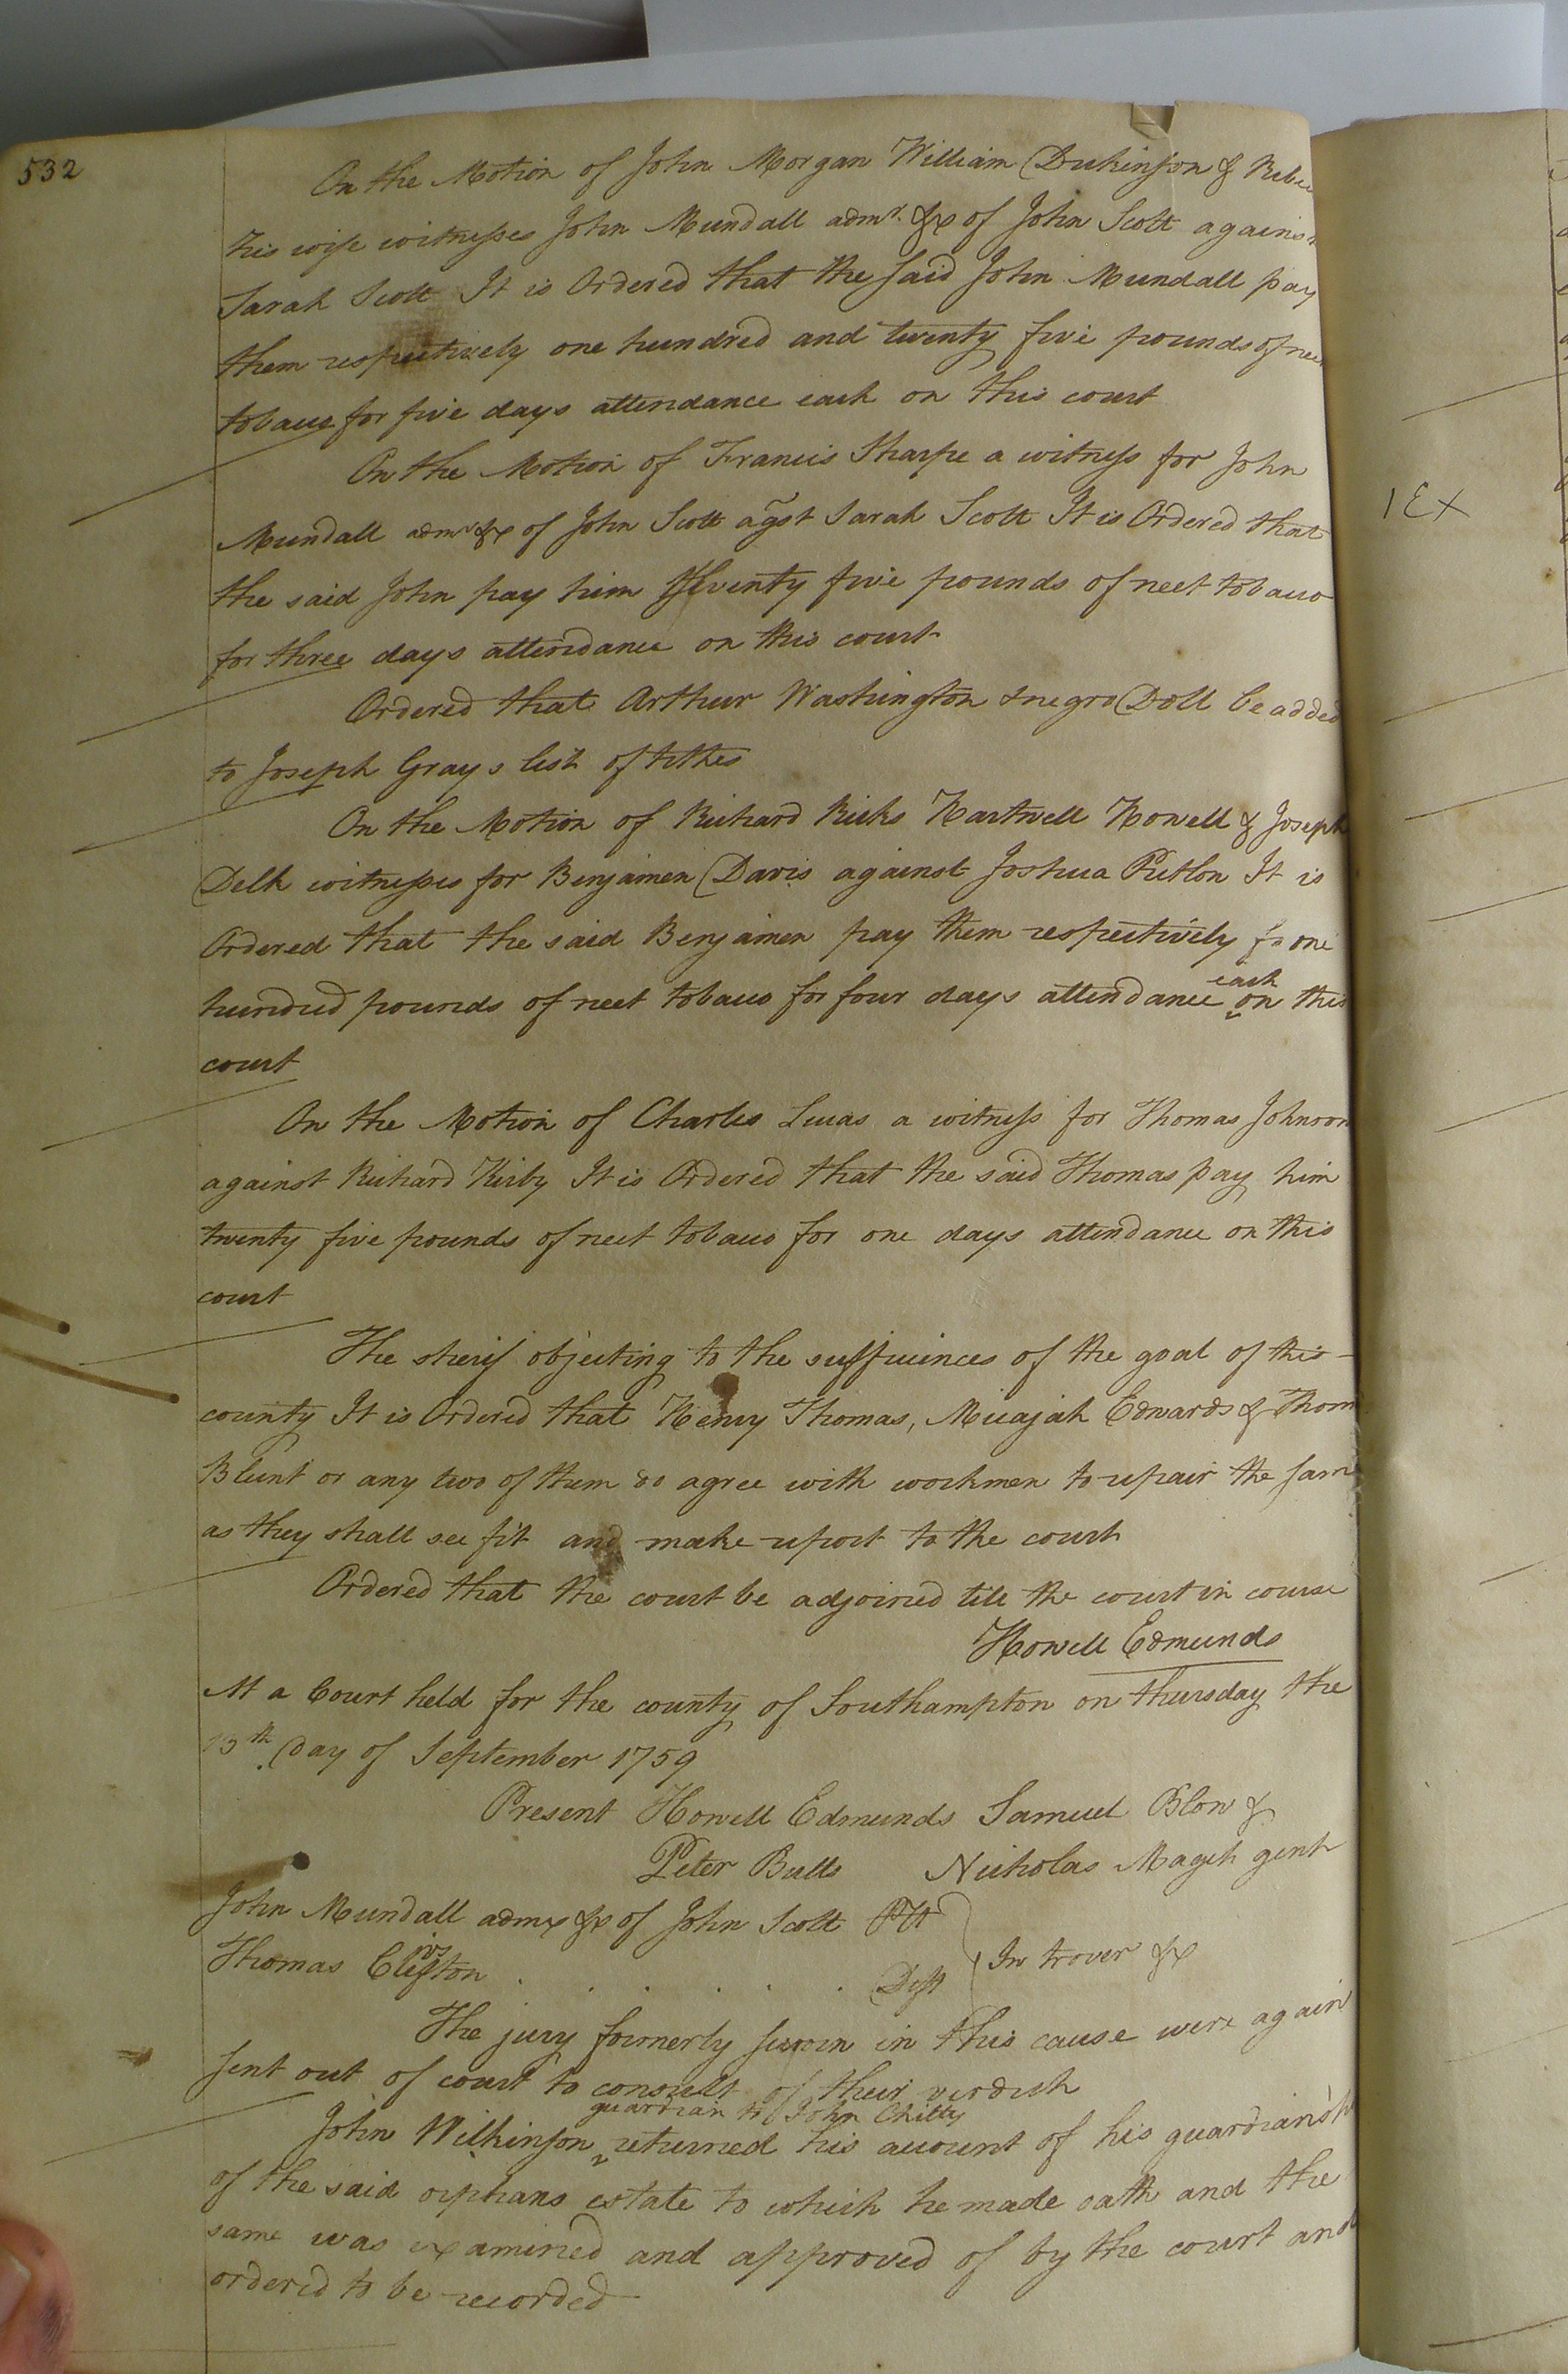 532
On the Motion of John Morgan William Dickinson & Rebec
his wife witnesses John Mundall admr. &c of John Scott against
Sarah Scott It is Ordered that the said John Mundall pay
them respectively one hundred and twenty five pounds of neet
tobacco for five days attendance each on this court
On the Motion of Francis Sharpe a witness for John
Mundall admr &c of John Scott agst Sarah Scott It is Ordered that
the said John pay him seventy five pounds of neet tobacco
for three days attendance on this court
Ordered that Arthur Washington & negro Doll be added
to Joseph Grays list of tithes
On the Motion of Richard Ricks Hartwell Howell & Joseph
Delk witnesses for Benjamen Davis against Joshua It is
Ordered that the said Benjamen pay them respectively one
hundred pounds of neet tobacco for four days attendance each on this
court
On the Motion of Charles Lucas a witness for Thomas Johnson
against Richard Kirby It is Ordered that the said Thomas pay him
twenty five pounds of neet tobacco for one days attendance on this
court
The sherif objecting to the sufficiences of the goal of this
county It is Ordered that Henry Thomas, Micajah Edwards & Thom
Blunt or any two of them do agree with workmen to repair the same
as they shall see fit and make report to the court
Ordered that the court be adjoined till the court in course
Howell Edmunds
At a Court held for the county of Southampton on thursday the
13th. Day of September 1759
Present Howell Edmunds Samuel Blow &
Peter Butts Nicholas Maget gent
John Mundall admx &c of John Scott Plt
Thomas Clifton . . . . . Deft
In trover &c
The jury formerly sworn in this cause were again
sent out of court to consult of their verdict
guardian to John Chitty
John Wilkinson returned his account of his guardiansh
of the said orphans estate to which he made oath and the
same was examined and approved of by the court and
ordered to be recorded
1EX